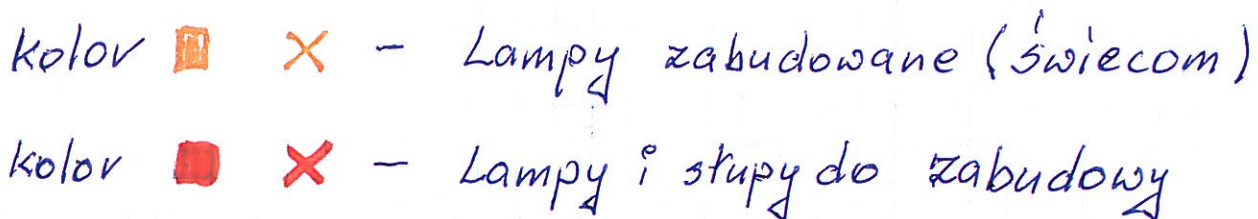 kolor X - Lampy zabudowane (świecom)
kolor X - Lampy i słupy do zabudowy